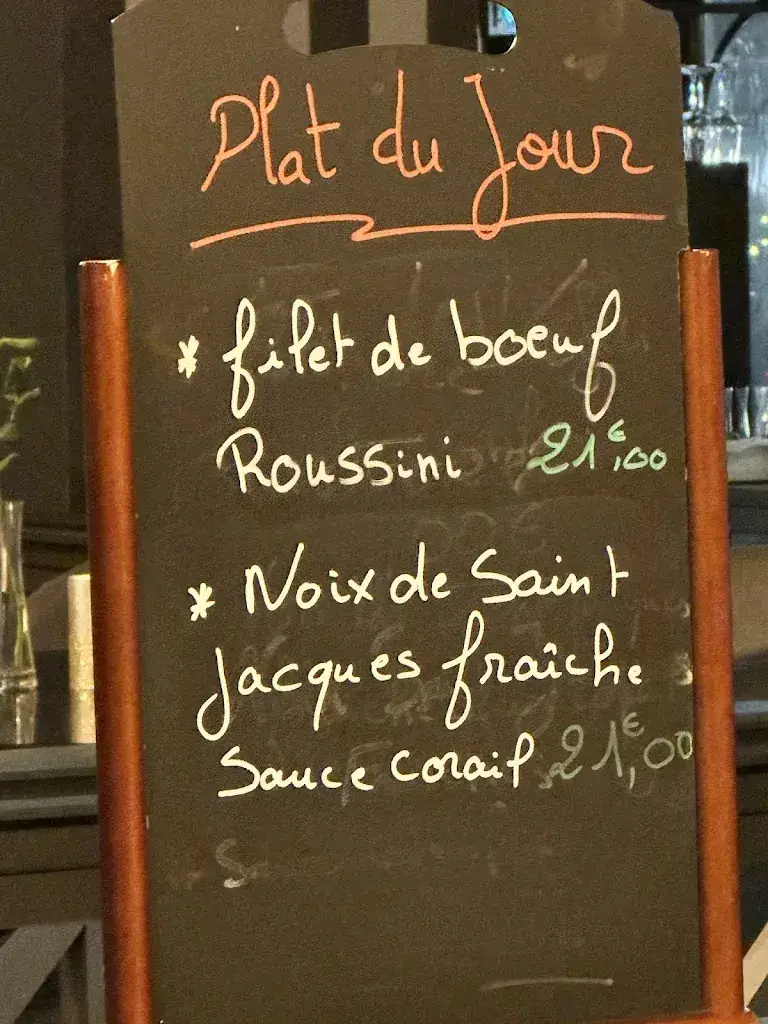 Plat du Jour
* filet de boeuf
Roussini 21€,00
* Noix de Saint
Jacques fraîche
Sauce corail 21€,00